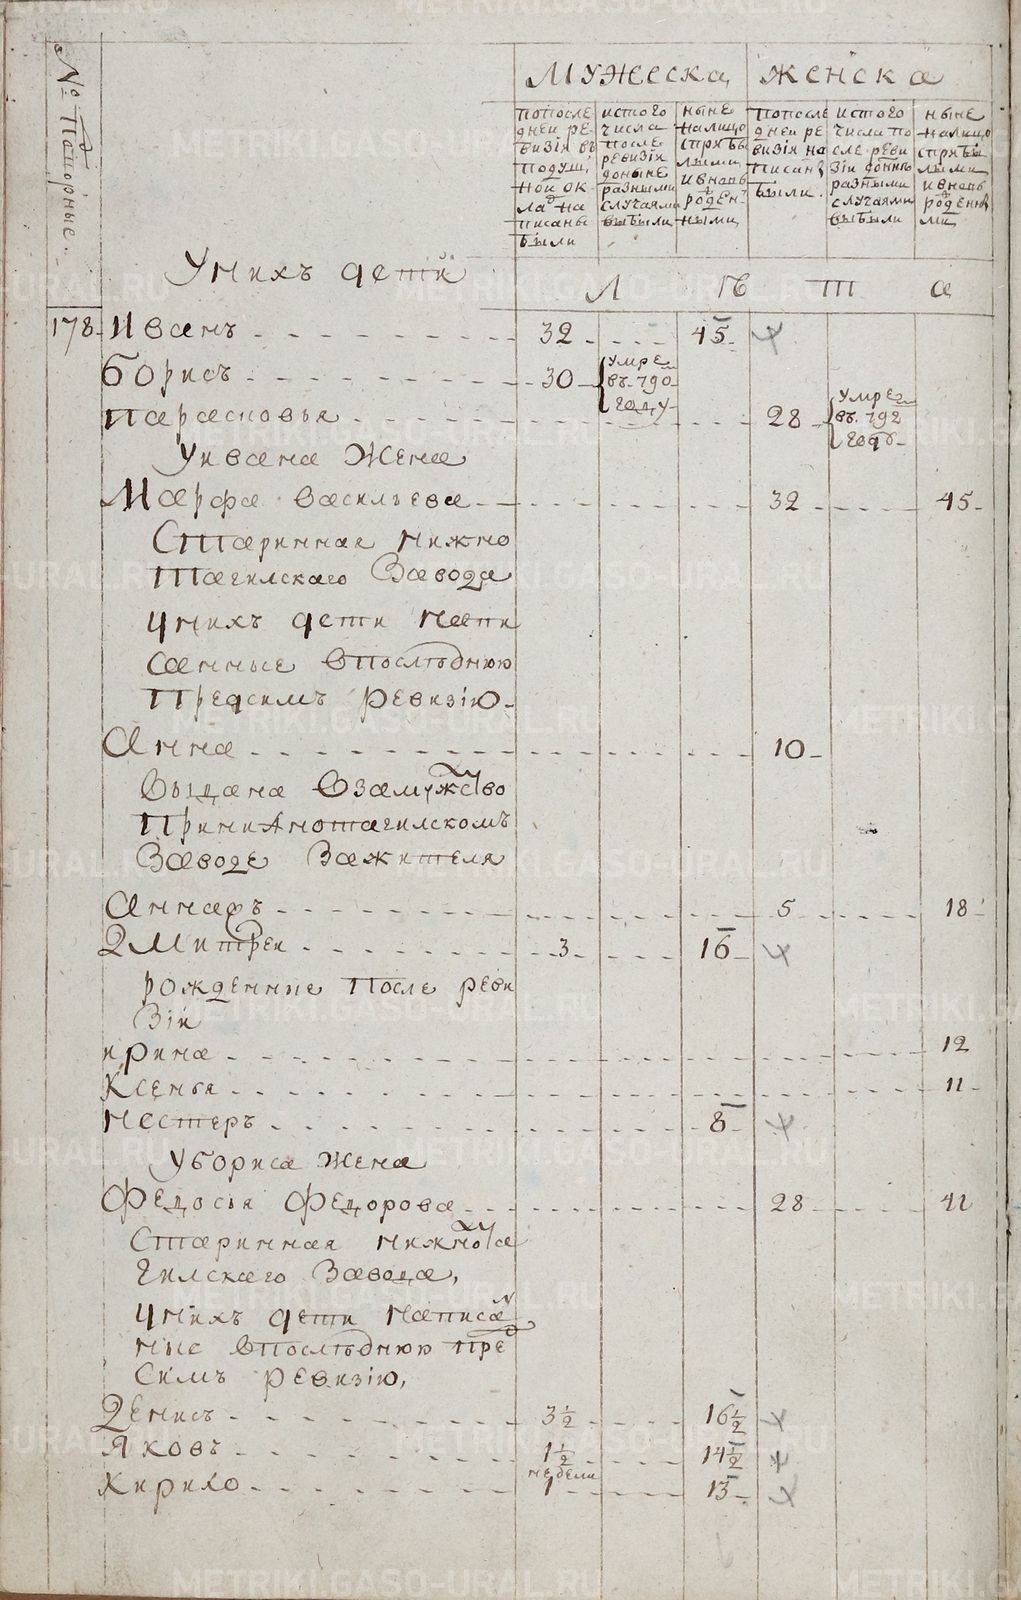 № Папорные.
мужеска
женска
попосле
дней ре
визiя въ
подуш
ной ок
ладъ на
писаны
были
истого
числа
после
ревизiи
доныне
разными
случаями
выбыли
ныне
налицо
спрѣбы
лыми
ивновь
рожден
ными
попосле
дней ре
визiя на
писаны
были.
истого
числа по
сле реви
зiи донынѣ
разными
случаями
выбыли
ныне
налицо
спрѣбы
лыми
ивновь
рожденны
ми
Унихъ дети
Л ѣ т а
178 Иванъ 32 45
Борисъ 30 умре
въ 790
году
Парасковья 28 умре
въ 792
годѣ
Уивана Жена
Марфа Васильева 32 45
Старинная нижно
Тагилскаго Завода
Унихъ дети напи
санные впослѣднюю
Предсимъ ревизiю
Анна 10
Выдана Взамужство
Принижнотагилскомъ
Заводе Зажителя
Аннаж 5 18
Дмитреи 3 16
рожденные После реви
зiи
ирина 12
Ксенья 11
Нестеръ 8
Убориса Жена
Федосья Федорова 28 41
Старинная нижнота
гилскаго Завода,
Унихъ дети написа
ные впослѣднюю пре
Симъ ревизiю,
Денисъ 3½ 16½
Яковъ 1½ 14½
Кирило недели
1 13
METRIKI.GASO-URAL.RU